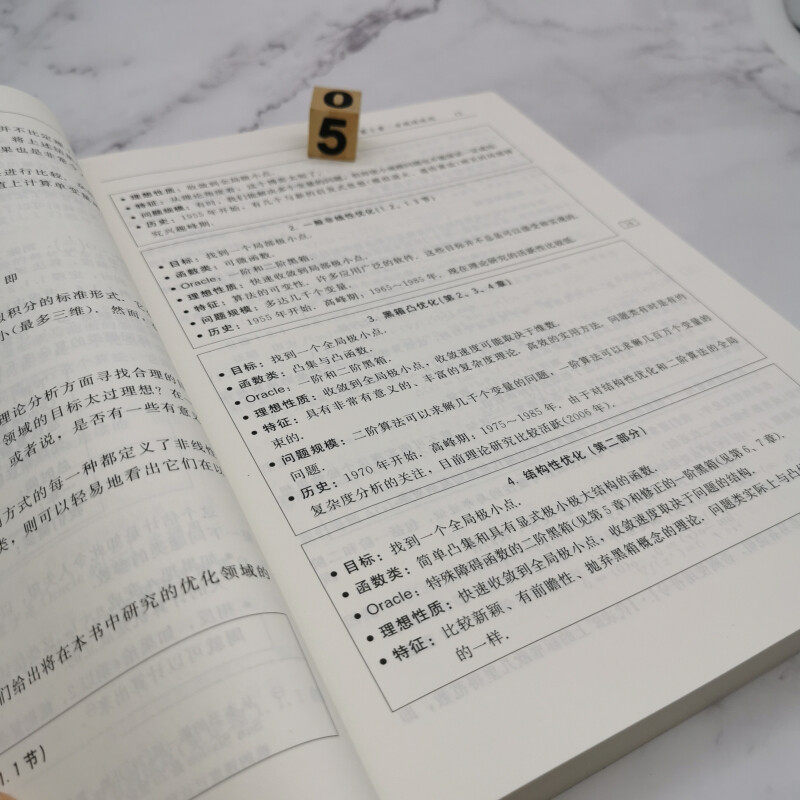 即
积分的标准形式.
小(最多三维). 然而,
理论分析方面寻找合理的
领域的目标太过理想? 在
或者说, 是否有一些有意义
方式的每一种都定义了非线性
类, 则可以轻易地看出它们在以
们给出将在本书中研究的优化领域的
1.1 节)
0
5
• 理想性质: 收敛到全局极小点.
• 历史: 1955 年开始,
究兴趣峰期.
2. 一般非线性优化(1.2, 1.3 节)
• 目标: 找到一个局部极小点.
• 函数类: 可微函数.
• Oracle: 一阶和二阶黑箱.
• 理想性质: 快速收敛到局部极小点.
• 特征: 算法的可变性. 许多应用广泛的软件. 这些目标并不总是可以接受和实现的.
• 问题规模: 多达几千个变量.
• 历史: 1955 年开始. 高峰期: 1965~1985 年, 现在理论研究的活跃性比较低.
3. 黑箱凸优化(第 2、3、4 章)
• 目标: 找到一个全局极小点.
• 函数类: 凸集与凸函数.
• Oracle: 一阶和二阶黑箱.
• 理想性质: 收敛到全局极小点, 收敛速度可能取决于维数.
• 特征: 具有非常有意义的、丰富的复杂度理论. 高效的实用方法. 问题类有时是有约
束的.
• 问题规模: 二阶算法可以求解几千个变量的问题, 一阶算法可以求解几百万个变量的
问题.
• 历史: 1970 年开始. 高峰期: 1975~1985 年. 由于对结构性优化和二阶算法的全局
复杂度分析的关注, 目前理论研究比较活跃(2006 年).
4. 结构性优化 (第二部分)
• 目标: 找到一个全局极小点.
• 函数类: 简单凸集和具有显式极小极大结构的函数.
• Oracle: 特殊障碍函数的二阶黑箱(见第 5 章)和修正的一阶黑箱(见第 6、7 章).
• 理想性质: 快速收敛到全局极小点, 收敛速度取决于问题的结构.
• 特征: 比较新颖、有前瞻性、抛弃黑箱概念的理论. 问题类实际上与凸优
的一样.